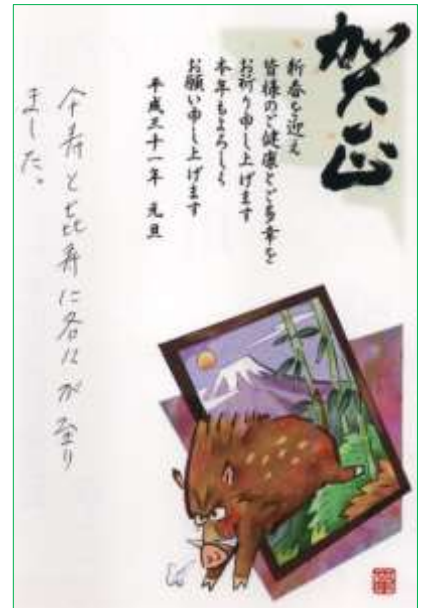 賀正
新春を迎え
皆様のご健康とご多幸を
お祈り申し上げます
本年もよろしく
お願い申し上げます
平成三十一年 元旦
傘寿と喜寿に各々が至り
ました。